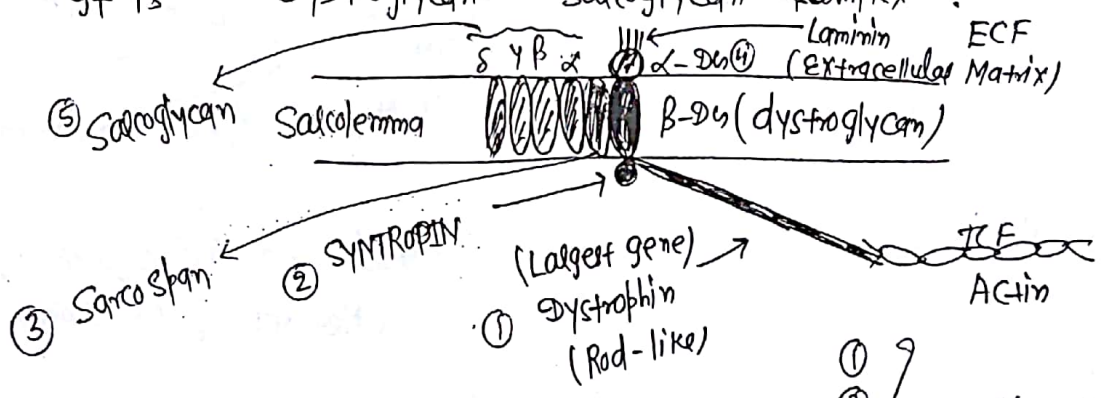 δ γ β α
α-DG ④
Laminin
ECF
(Extracellular Matrix)
⑤ Sarcoglycan
Sarcolemma
β-DG (dystroglycan)
③ Sarcospan
② SYNTROPIN
(Largest gene)
① Dystrophin
(Rod-like)
ICF
Actin
①